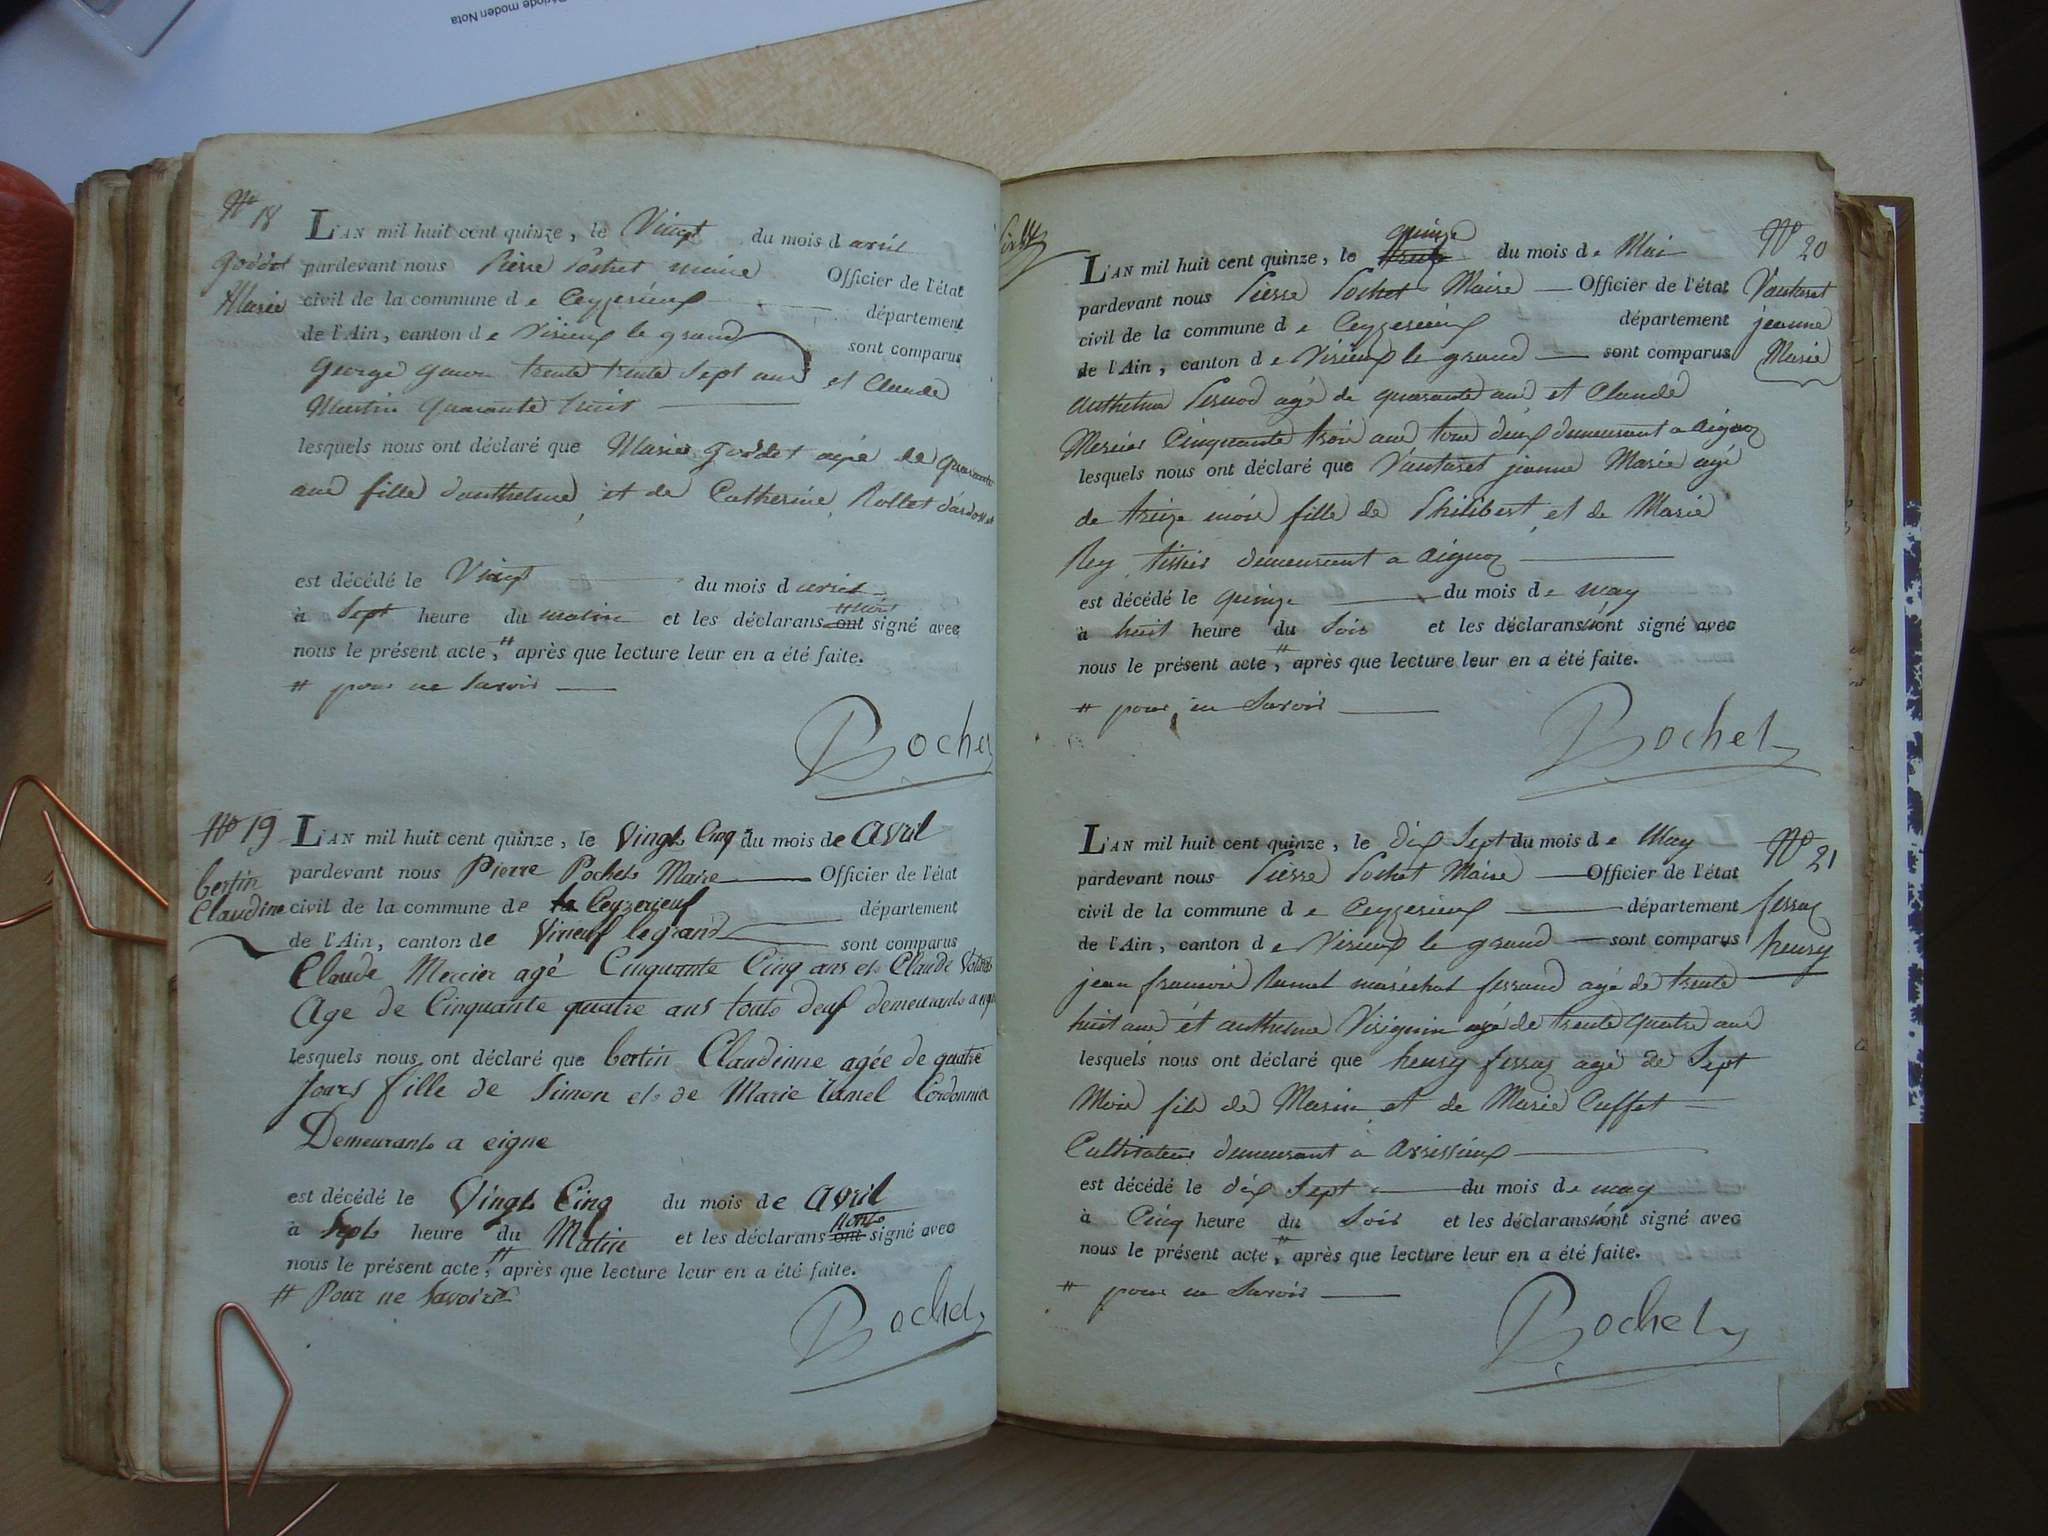 Période moden Nota
N° 18
goddet
Marie
L'AN mil huit cent quinze, le Vingt du mois d avril
pardevant nous Pierre Pochet maire Officier de l'état
civil de la commune d e Ceyzerieux département
de l'Ain, canton d e Virieux le grand sont comparus
george trente trente Sept ans et Claude
Martin quarante huit
lesquels nous ont déclaré que Marie goddet agée de quarante
ans fille d'anthelme et de Catherine Rollet
est décédé le Vingt du mois d avril
à Sept heure du matin et les déclarans ont n'ont signé avec
nous le présent acte, # après que lecture leur en a été faite.
# pour ne Savoir
Pochet
N° 19
bertin
Claudine
L'AN mil huit cent quinze, le Vingt Cinq du mois de avril
pardevant nous Pierre Pochet Maire Officier de l'état
civil de la commune de Ceyzerieux département
de l'Ain, canton de Virieux le grand sont comparus
Claude Mercier agé Cinquante Cinq ans et Claude
Age de Cinquante quatre ans touts deux demeurants a
lesquels nous ont déclaré que bertin Claudinne agée de quatre
Jours fille de Simon et de Marie Cordonnier
Demeurants a eigne
est décédé le Vingt Cinq du mois de avril
à Sept heure du Matin et les déclarans ont n'ont signé avec
nous le présent acte, # après que lecture leur en a été faite.
# Pour ne Savoir
Pochet
N° 20
Vautaret
jeanne
Marie
L'AN mil huit cent quinze, le treize quinze du mois d e Mai
pardevant nous Pierre Pochet Maire Officier de l'état
civil de la commune d e Ceyzerieux département
de l'Ain, canton d e Virieux le grand sont comparus
anthelme Pernod agé de quarante ans et Claude
Mercier Cinquante trois ans tous deux demeurant a aignoz
lesquels nous ont déclaré que Vautaret jeanne Marie agé
de treize mois fille de Philibert et de Marie
Rey tissier demeurant a aignoz
est décédé le quinze du mois d e may
à huit heure du Soir et les déclarans n'ont signé avec
nous le présent acte, # après que lecture leur en a été faite.
# pour ne Savoir
Pochet
N° 21
ferraz
henry
L'AN mil huit cent quinze, le dix Sept du mois d e may
pardevant nous Pierre Pochet Maire Officier de l'état
civil de la commune d e Ceyzerieux département
de l'Ain, canton d e Virieux le grand sont comparus
jean francois Ramel maréchal ferrand agé de trente
huit ans et anthelme Virignin agé de trente quatre ans
lesquels nous ont déclaré que henry ferraz agé de Sept
Mois fils de Marin et de Marie Cuffet
Cultivateur demeurant a avrissieux
est décédé le dix Sept du mois d e may
à Cinq heure du Soir et les déclarans n'ont signé avec
nous le présent acte, # après que lecture leur en a été faite.
# pour ne Savoir
Pochet